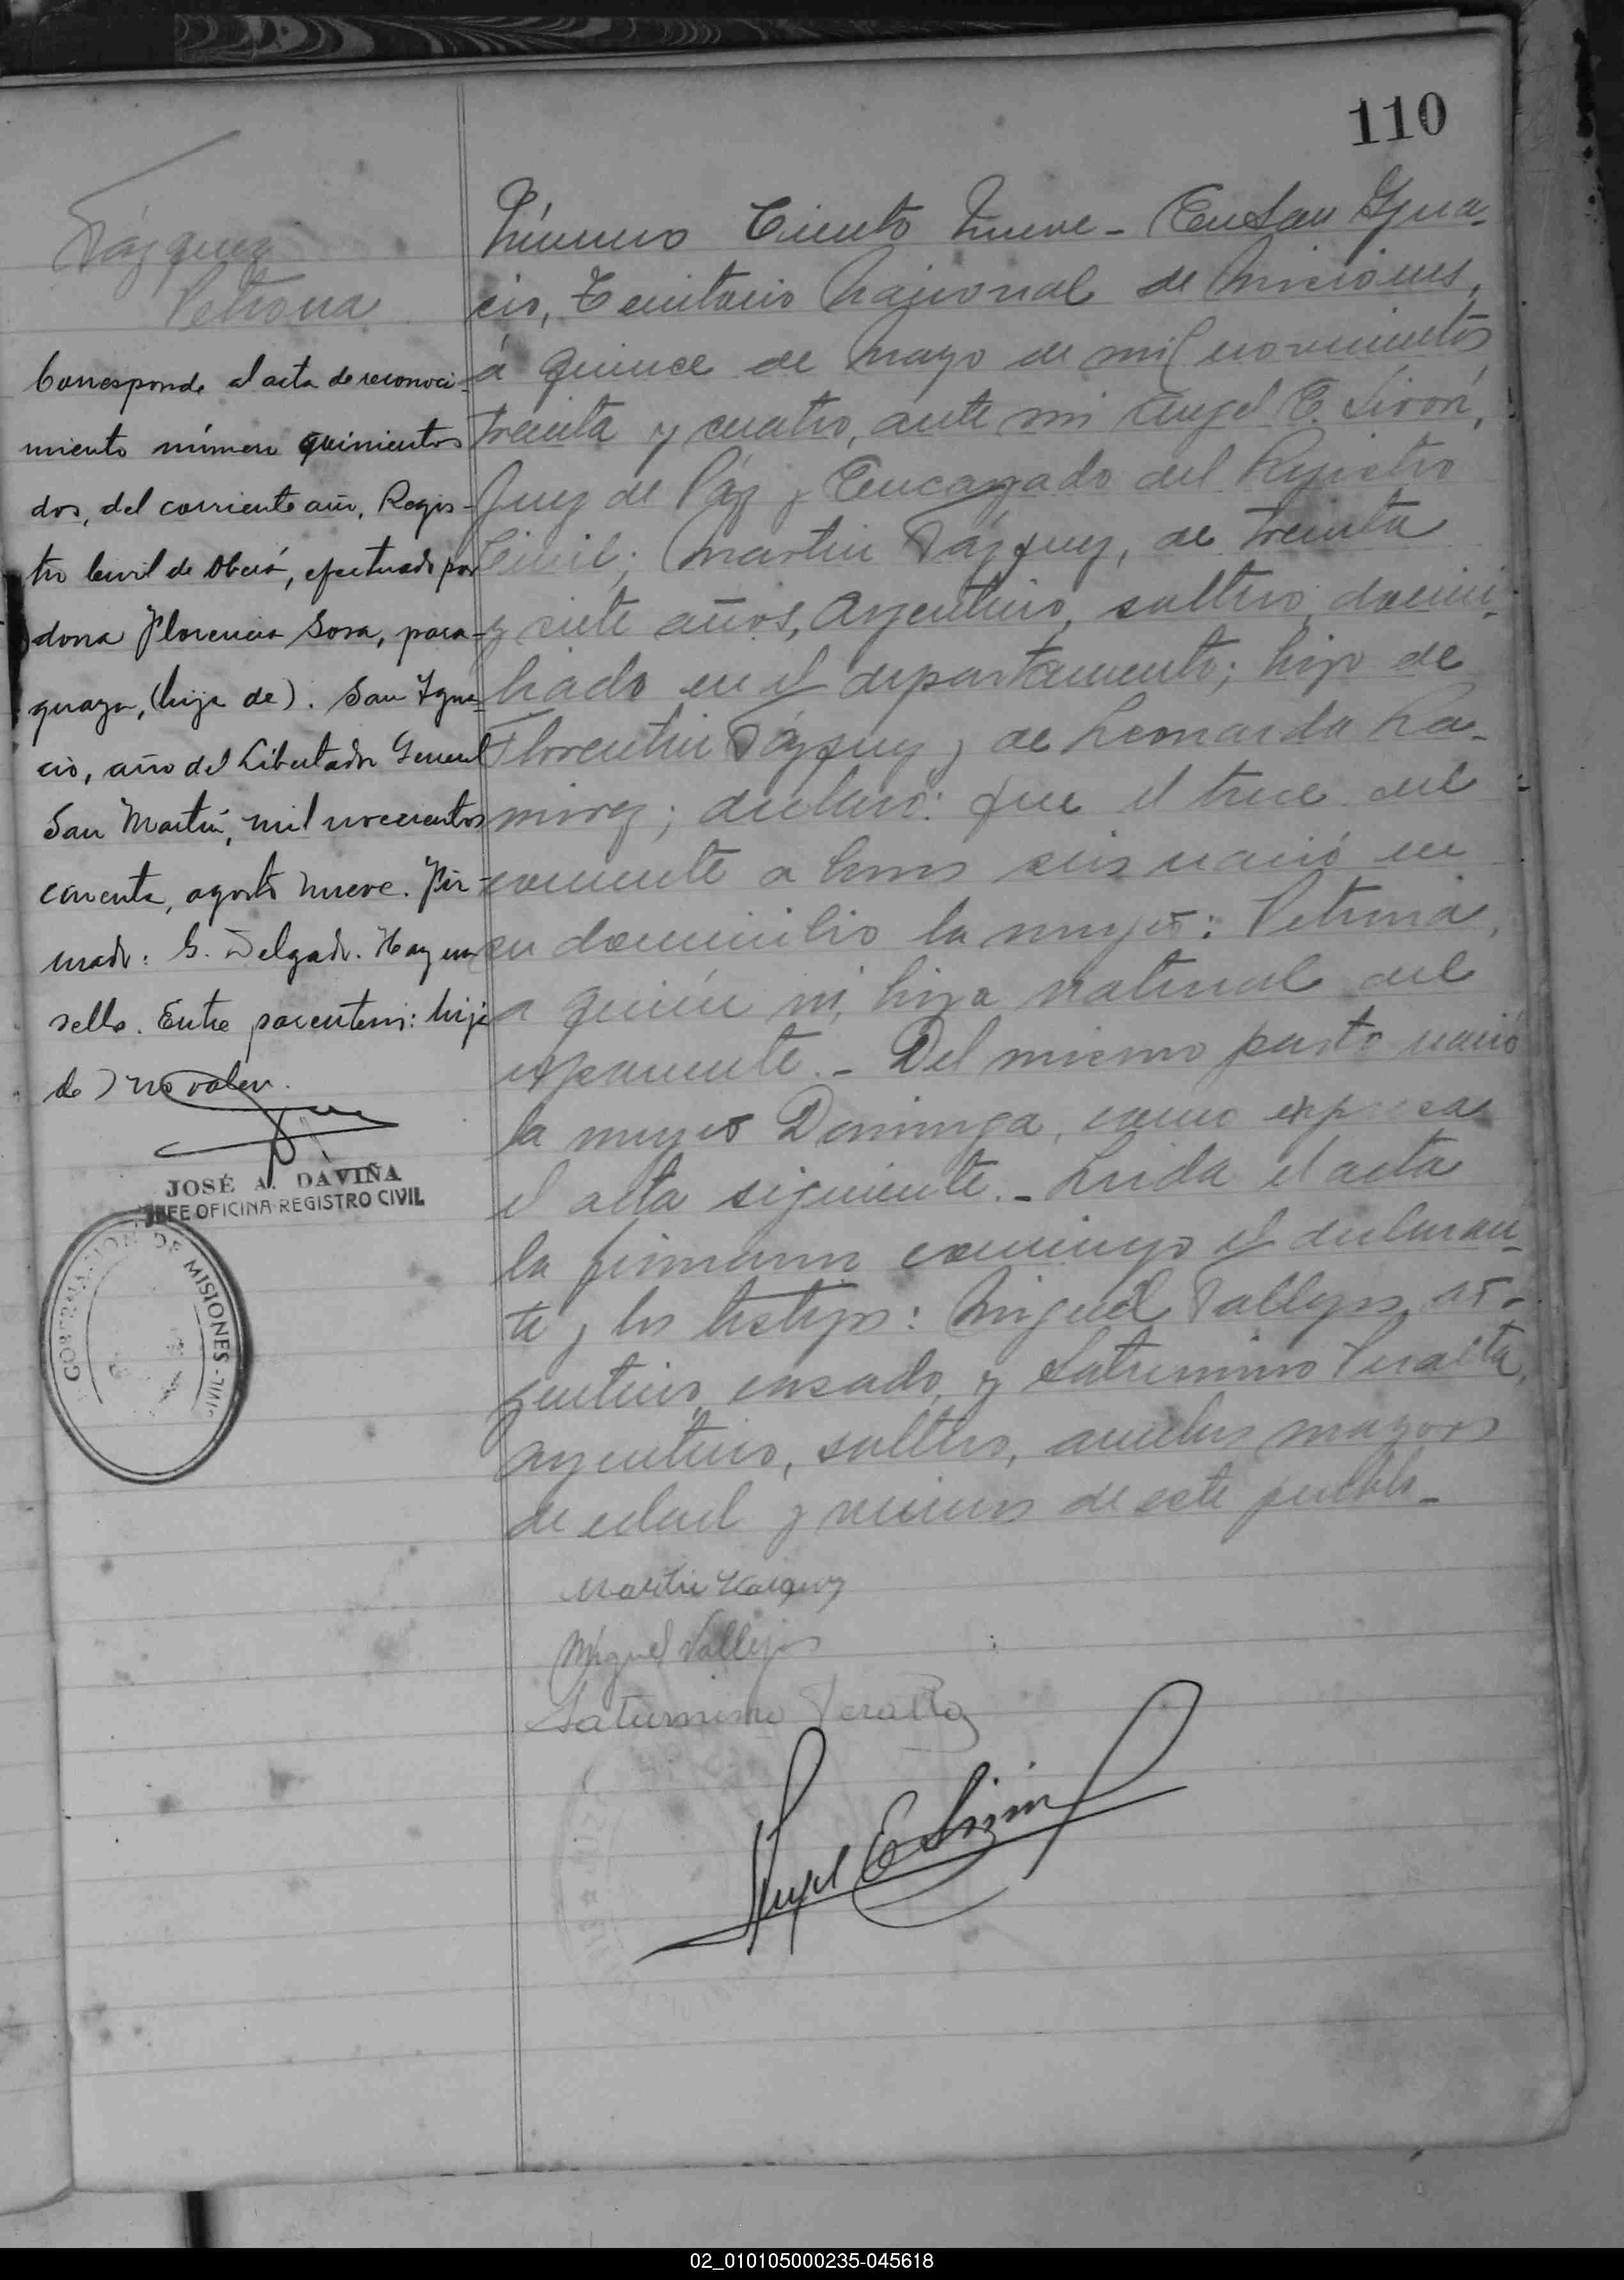 110
Vázquez
Petrona
Corresponde al acta de reconoci-
miento número quinientos
dos, del corriente año, Regis-
tro Civil de Oberá, efectuado por
dona Florencia Sosa, para-
guaya, (hija de). San Igna-
cio, año del Libertador General
San Martín, mil novecientos
cincuenta, agosto nueve. Fir-
mado: G. Delgado. Hay un
sello. Entre parentesis: hija
de) no valen.
JOSÉ A. DAVIÑA
JEFE OFICINA REGISTRO CIVIL
DE MISIONES
Número Ciento Nueve - En San Igna-
cio, Territorio Nacional de Misiones,
á quince de Mayo de mil novecientos
treinta y cuatro, ante mi Angel E.
Juez de Páz y Encargado del Registro
Civil; Martin Vázquez, de treinta
y siete años, Argentino, soltero, domici-
liado en el departamento; hijo de
Florentin Vázquez y de Leonarda Ra-
mirez; declaró: que el trece del
corriente a horas seis nació en
su domicilio la mujer: Petrona,
a quién ví, hija natural del
exponente. - Del mismo parto nació
la mujer Dominga, como expresa
el acta siguiente. - Leida el acta
la firmaron conmigo el declaran-
te y los testigos: Miguel Vallejos, ar-
gentino, casado, y Saturnino Peralta,
argentino, soltero, ambos mayores
de edad y vecinos de este pueblo. -
Martin Vazquez
Miguel Vallejos
Saturnino Peralta
Angel E
02_010105000235-045618